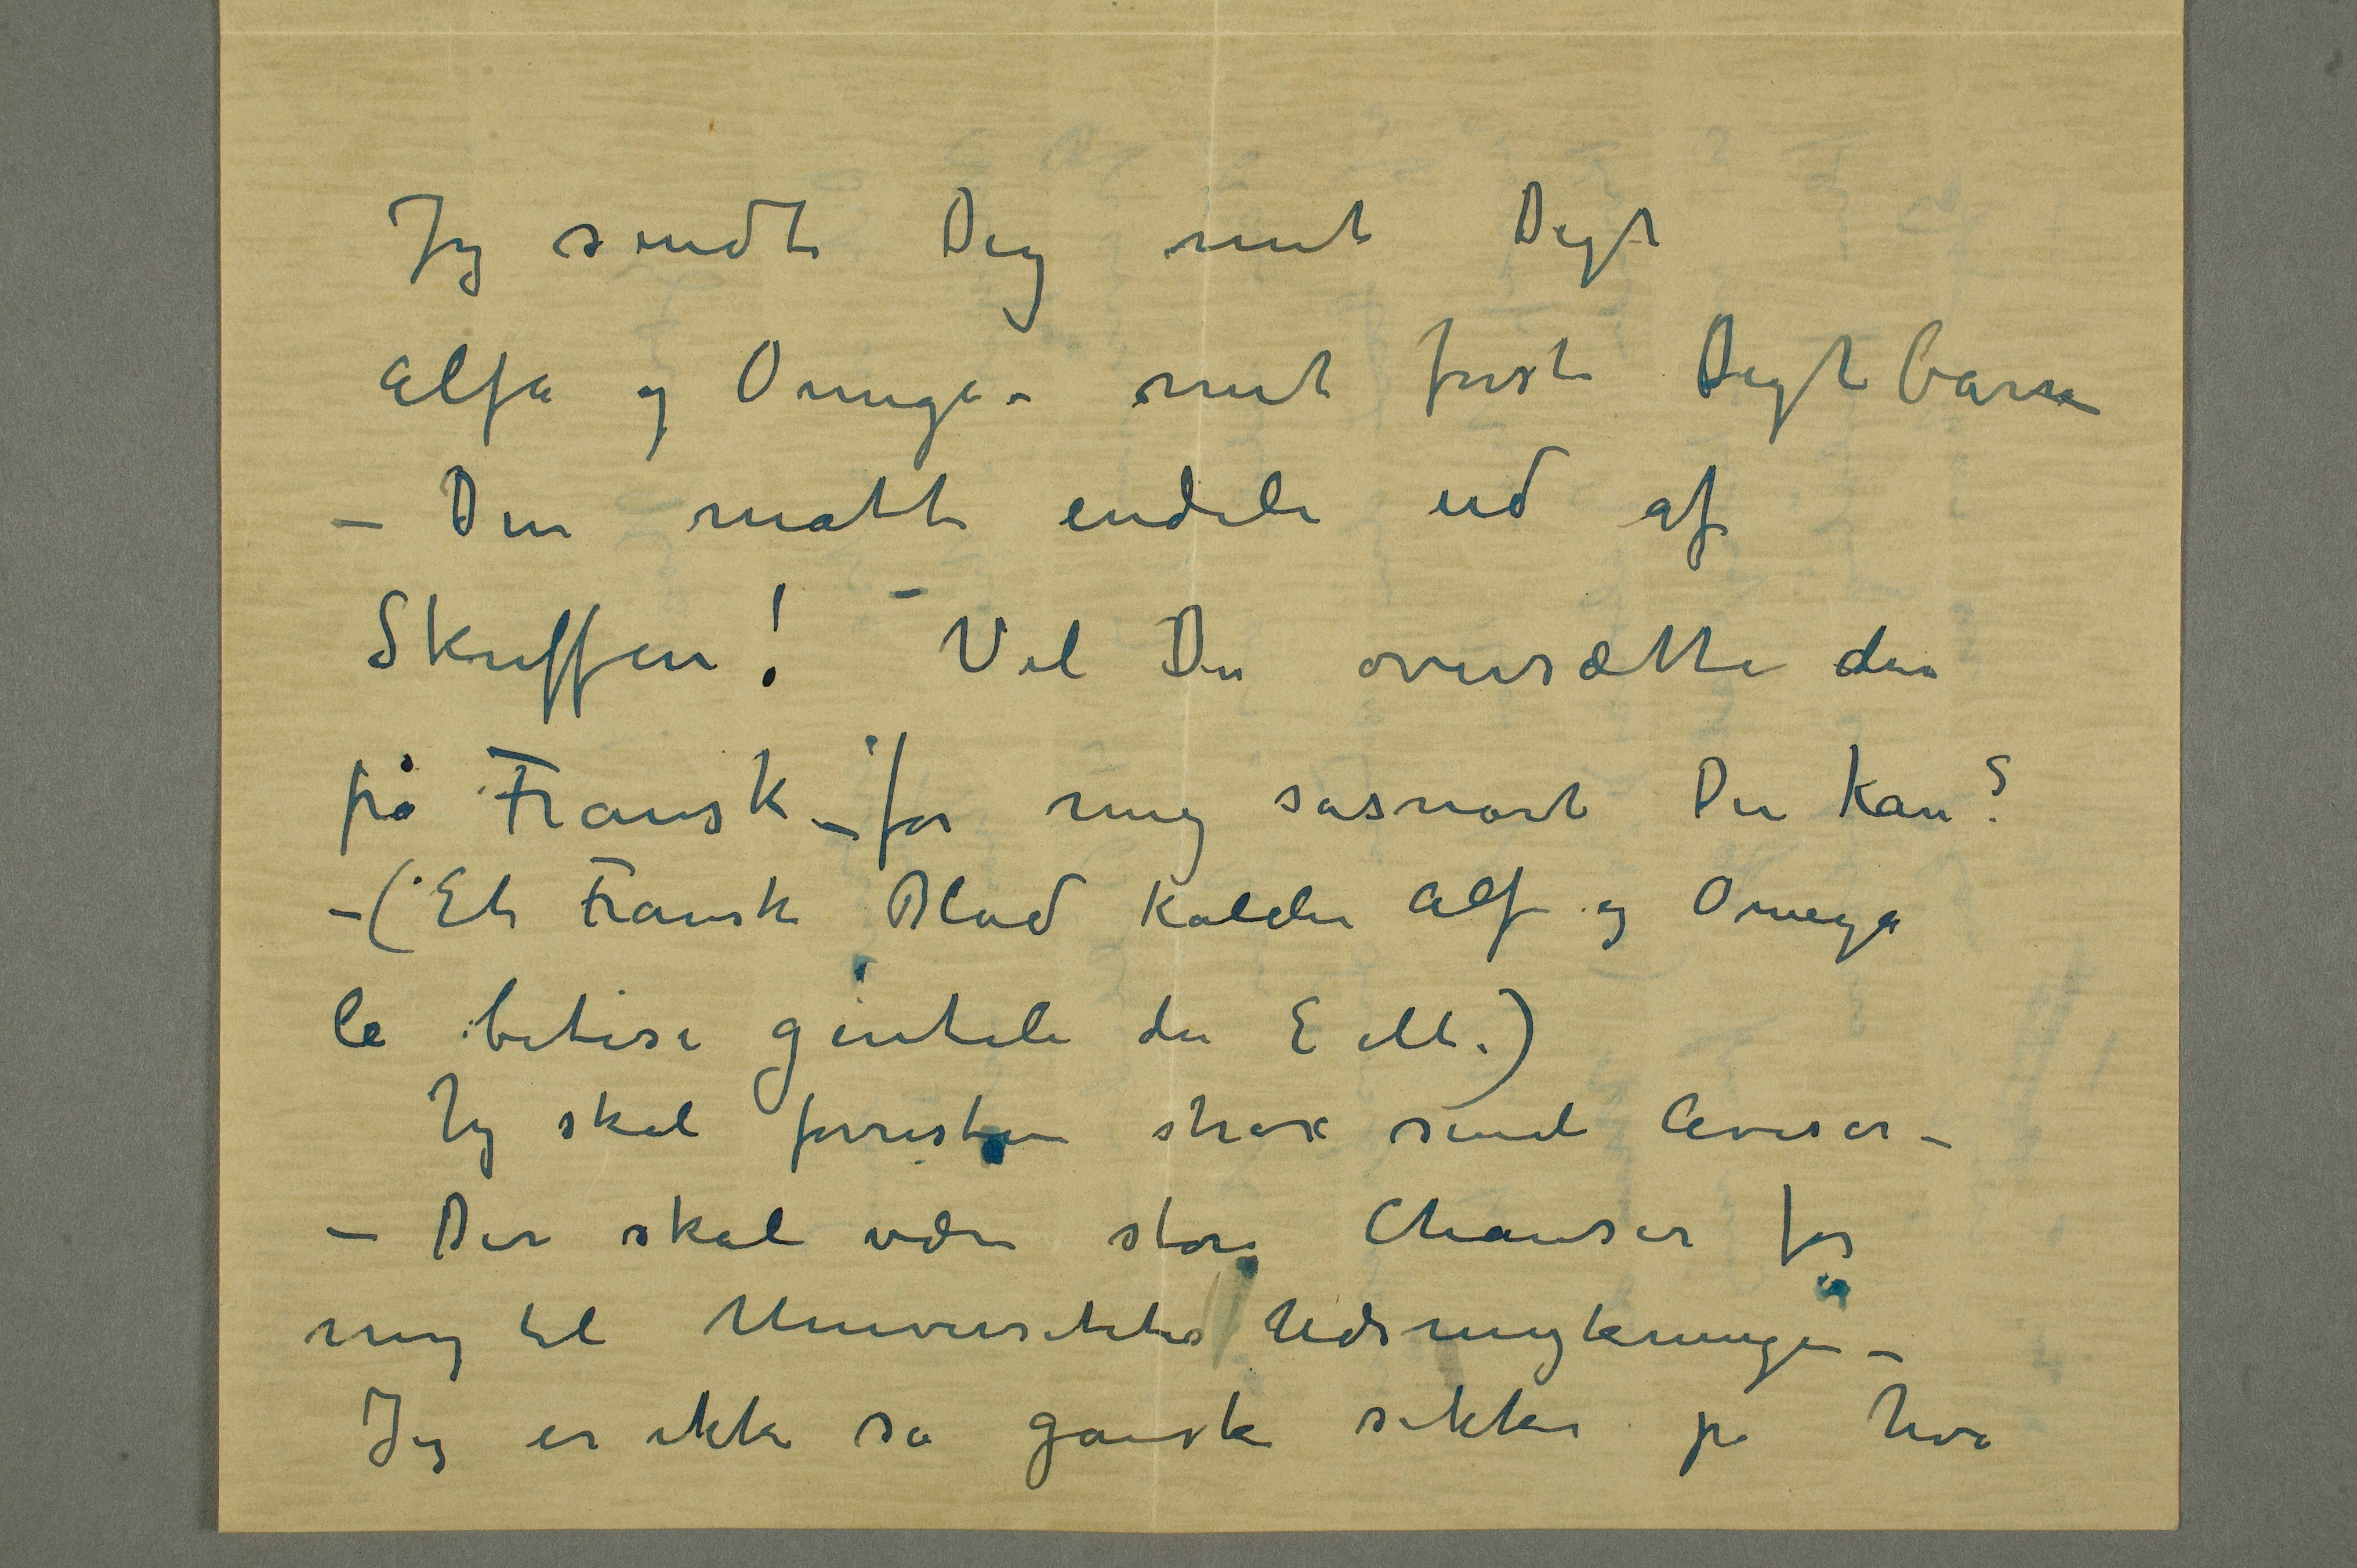 Jeg sendte Dig mit Digt
Alfa og Omega – mit første Digtbarn
– Den måtte endeli ud af
Skuffen! – Vil Du oversætte den
på Fransk – for mig såsnart Du kan?
– (Et Fransk Blad kalder Alfa og Omega
la betise gentile du E M.)
Jeg skal forresten strax sende Aviser –
– Der skal være store Chanser for
mig til Universitets Udsmykningen –
Jeg er ikke så ganske sikker på hva